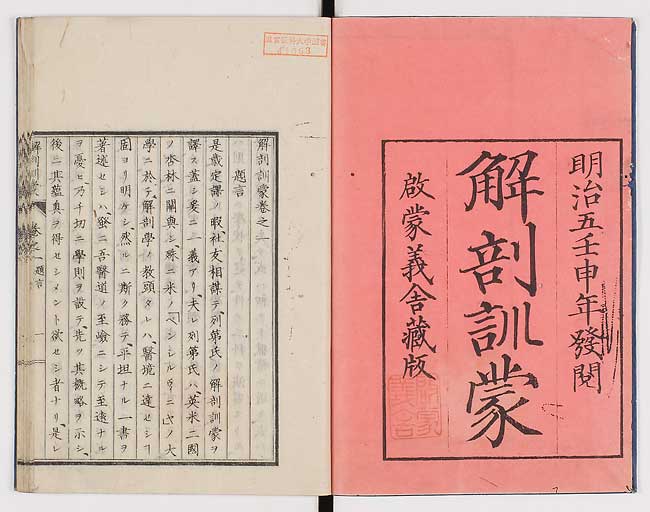 明治五壬申年發閱
解剖訓蒙
啟蒙義舎藏版
解剖訓蒙卷之一
題言
是歳定課ノ暇社友相謀テ列第氏ノ解剖訓蒙ヲ
譯ス蓋シ爰ニ二義アリ夫レ列第氏ハ英米二國
ノ杏林ニ闌輿シ殊ニ米ノ
學ニ於テ解剖學ノ教頭タレハ醫境ニ達セシヿ
固ヨリ明ケシ然ルニ斯ク務テ平坦ナル一書ヲ
著述セシハ蚤ニ吾醫道ノ至嶮ニシテ至遠ナル
ヲ憂ヒ乃チ切ニ學則ヲ設テ先ツ其概略ヲ示シ
後ニ其蘊奥ヲ得セシメント欲セシ者ナリ是レ
解剖訓蒙 卷之一 題言 一